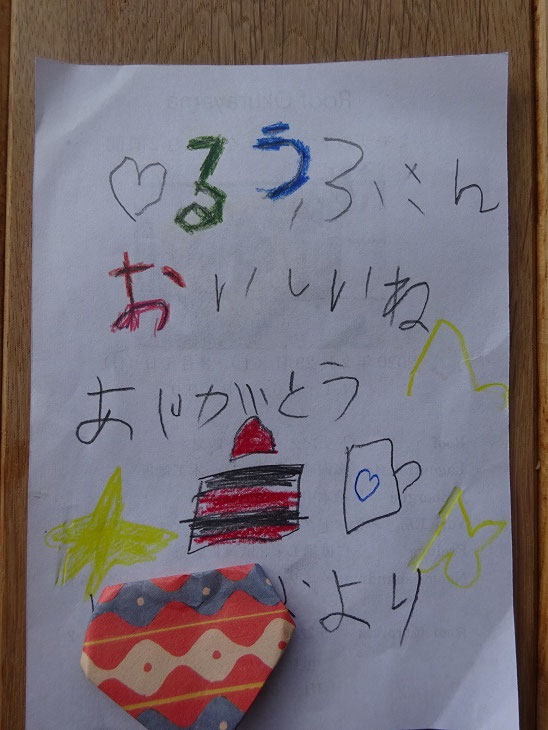 ♡るうふさん
おいしいね
ありがとう
いより